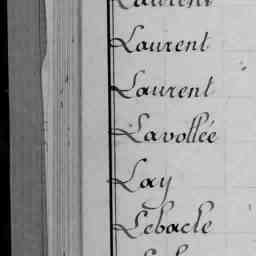 Laurent
Laurent
Laurent
Lavollée
Lay
Lebacle